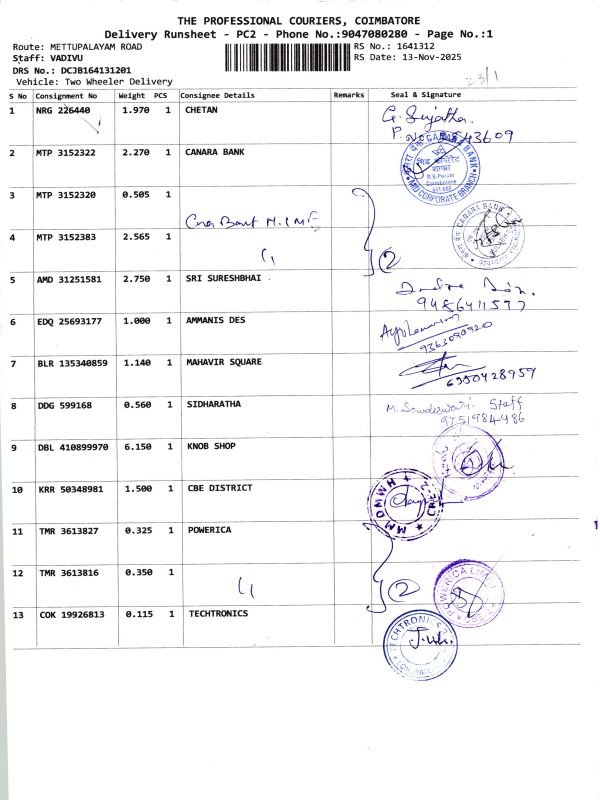 THE PROFESSIONAL COURIERS, COIMBATORE
Delivery Runsheet - PC2 - Phone No.:9047080280 - Page No.:1
Route: METTUPALAYAM ROAD RS No.: 1641312
Staff: VADIVU RS Date: 13-Nov-2025
DRS No.: DCJB164131201
Vehicle: Two Wheeler Delivery 23/1
S No Consignment No Weight PCS Consignee Details Remarks Seal & Signature
1 NRG 226440 1.970 1 CHETAN G. Sujatha
P.NO
2 MTP 3152322 2.270 1 CANARA BANK
CANARA BANK
R.S.Puram
Coimbatore
CORPORATE BRANCH
3 MTP 3152320 0.505 1
4 MTP 3152383 2.565 1 2
CANARA BANK
5 AMD 31251581 2.750 1 SRI SURESHBHAI
9486411577
6 EDQ 25693177 1.000 1 AMMANIS DES
9363090920
7 BLR 135340859 1.140 1 MAHAVIR SQUARE
6350428957
8 DDG 599168 0.560 1 SIDHARATHA Staff
9751984486
9 DBL 410899970 6.150 1 KNOB SHOP
10 KRR 50348981 1.500 1 CBE DISTRICT
MMDMWH CBE
11 TMR 3613827 0.325 1 POWERICA
12 TMR 3613816 0.350 1 2
POWERICA
13 COK 19926813 0.115 1 TECHTRONICS